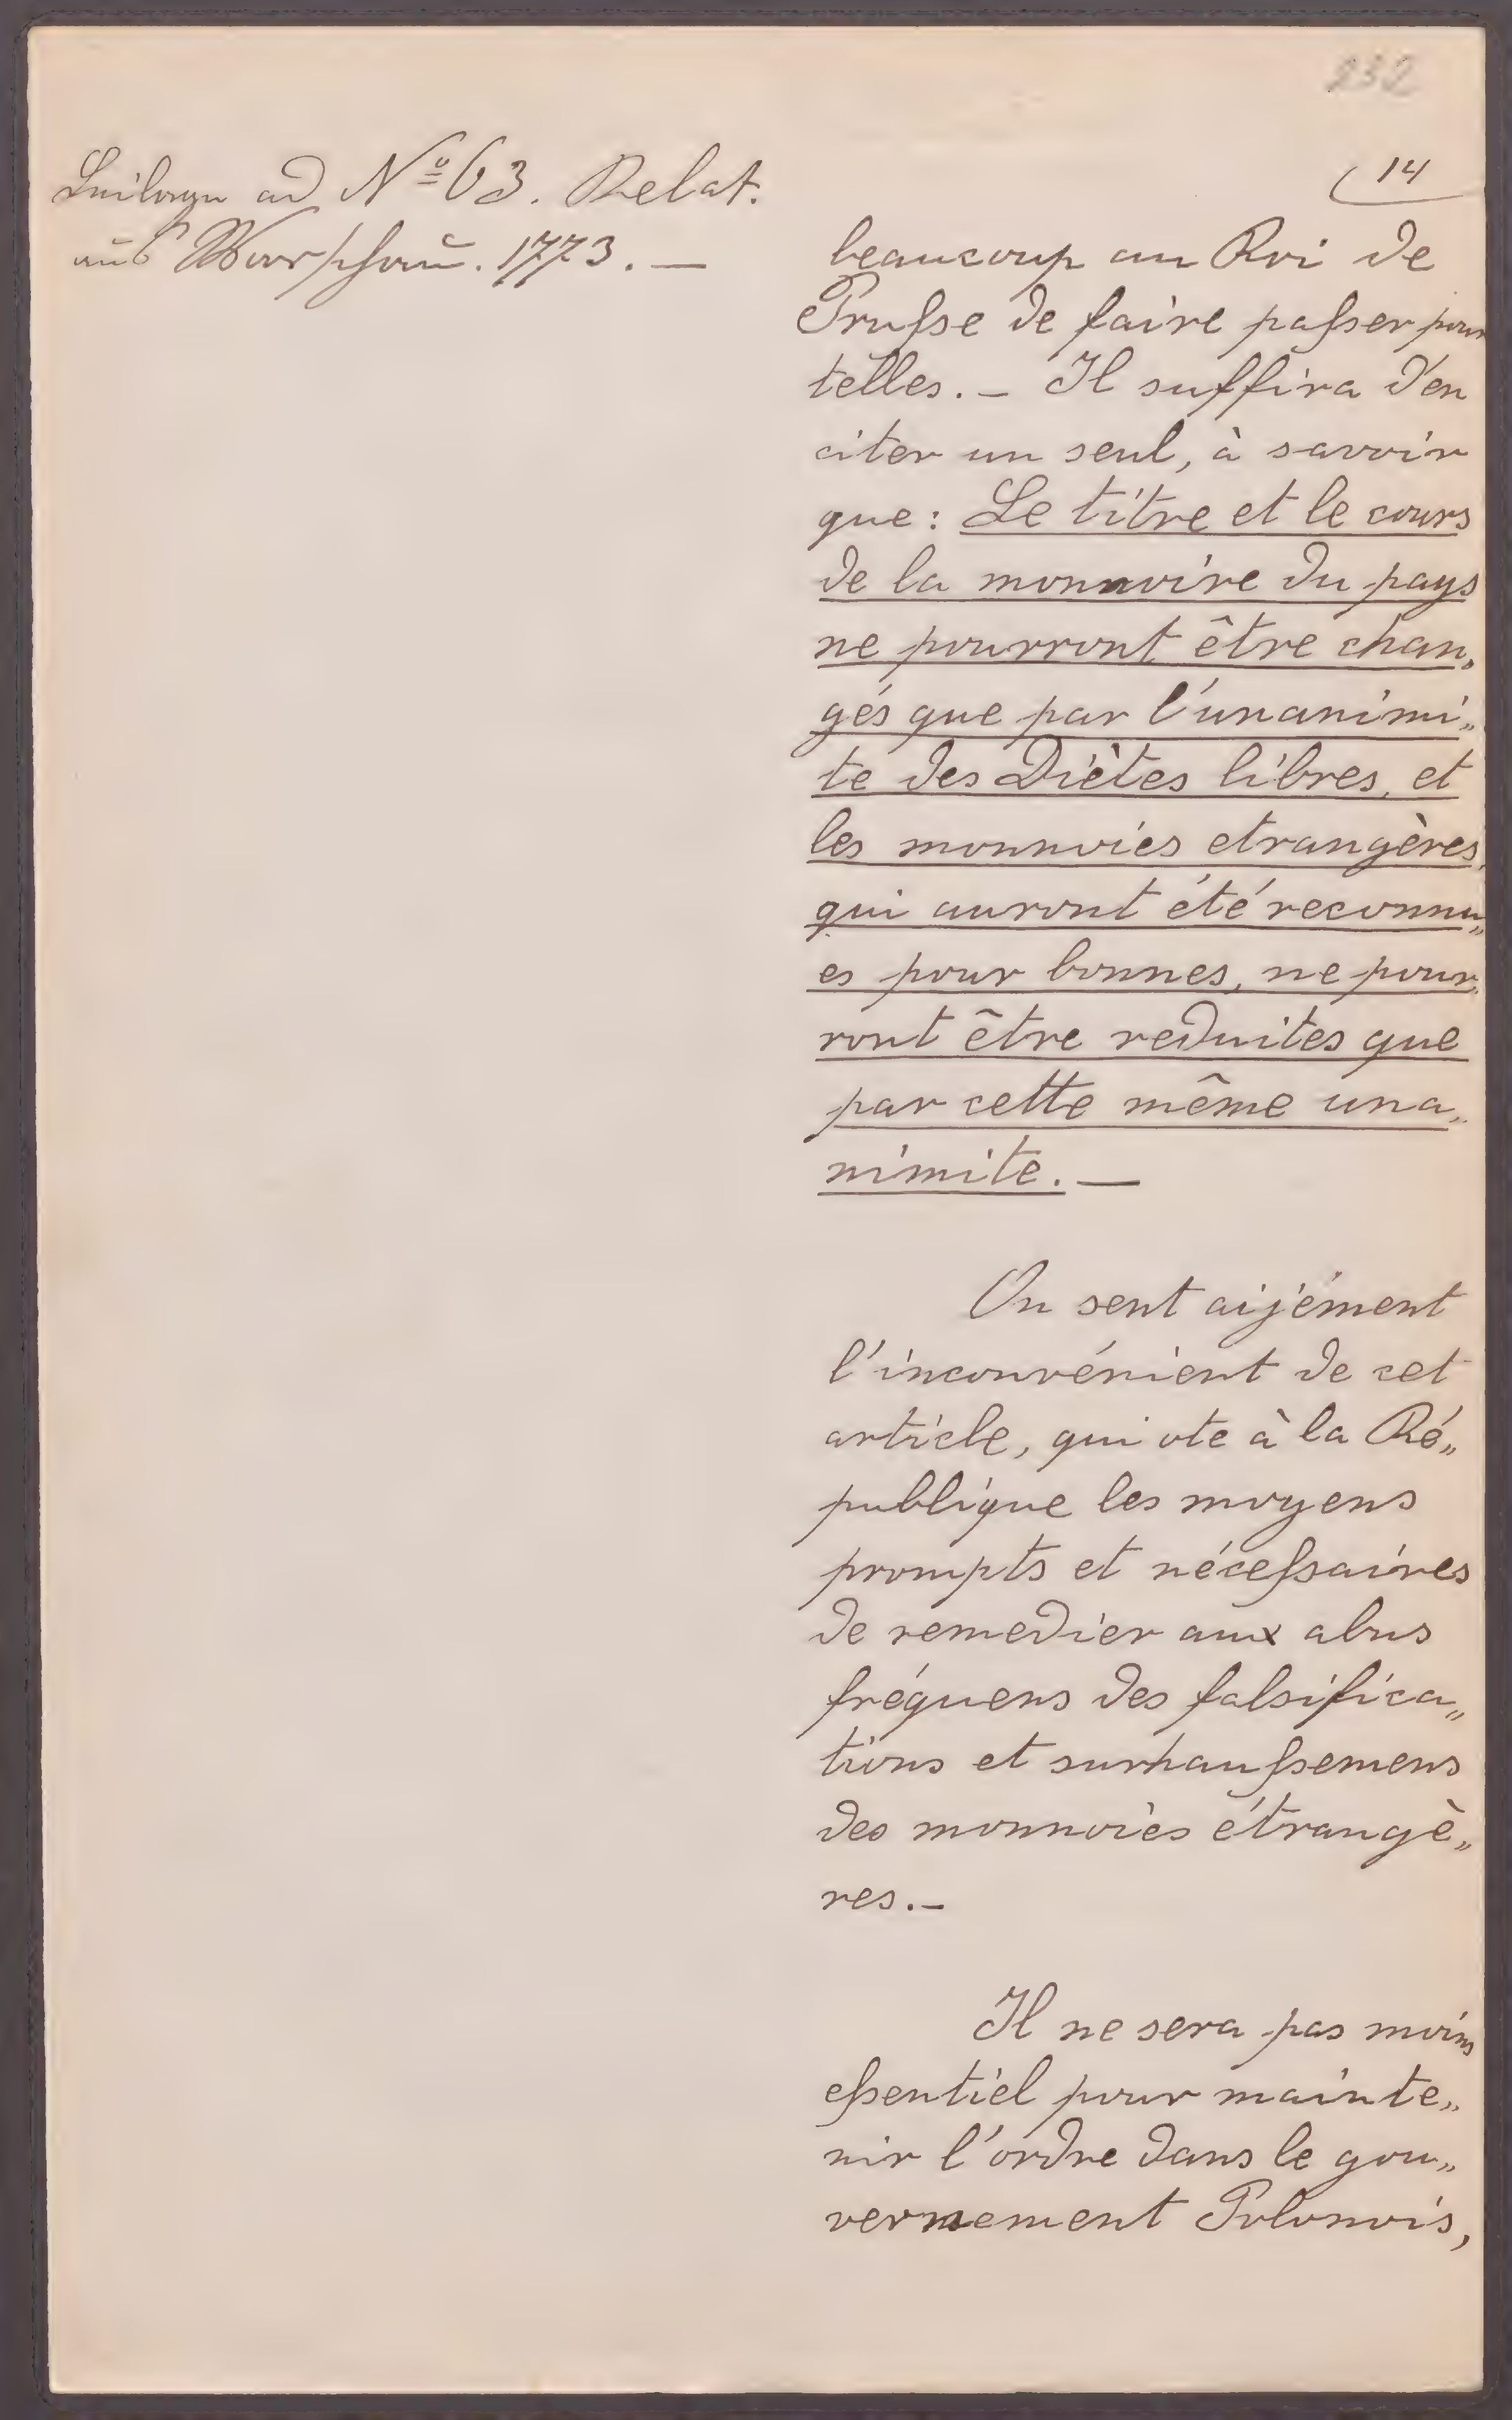 232
14
Beilagen ad Nº 63. Relat.
aus Warschau. 1773. —
beaucoup au Roi de
Prusse de faire passer pour
telles. — Il suffira d'en
citer un seul, à savoir
que: Le titre et le cours
de la monnoire du pays
ne pourront être chan„
gés que par l'unanimi„
te des Diètes libres, et
les monnoies etrangères,
qui auront été reconnu„
es pour bonnes, ne pour„
ront être reduites que
par cette même una„
nimite. —
On sent aisément
l'inconvénient de cet
article, qui ote à la Ré„
publique les moyens
prompts et nécessaires
de remedier aux abus
fréquens des falsifica„
tions et surhaussemens
des monnoies étrangè„
res. —
Il ne sera pas moins
essentiel pour mainte„
nir l'ordre dans le gou„
vernement Polonois,